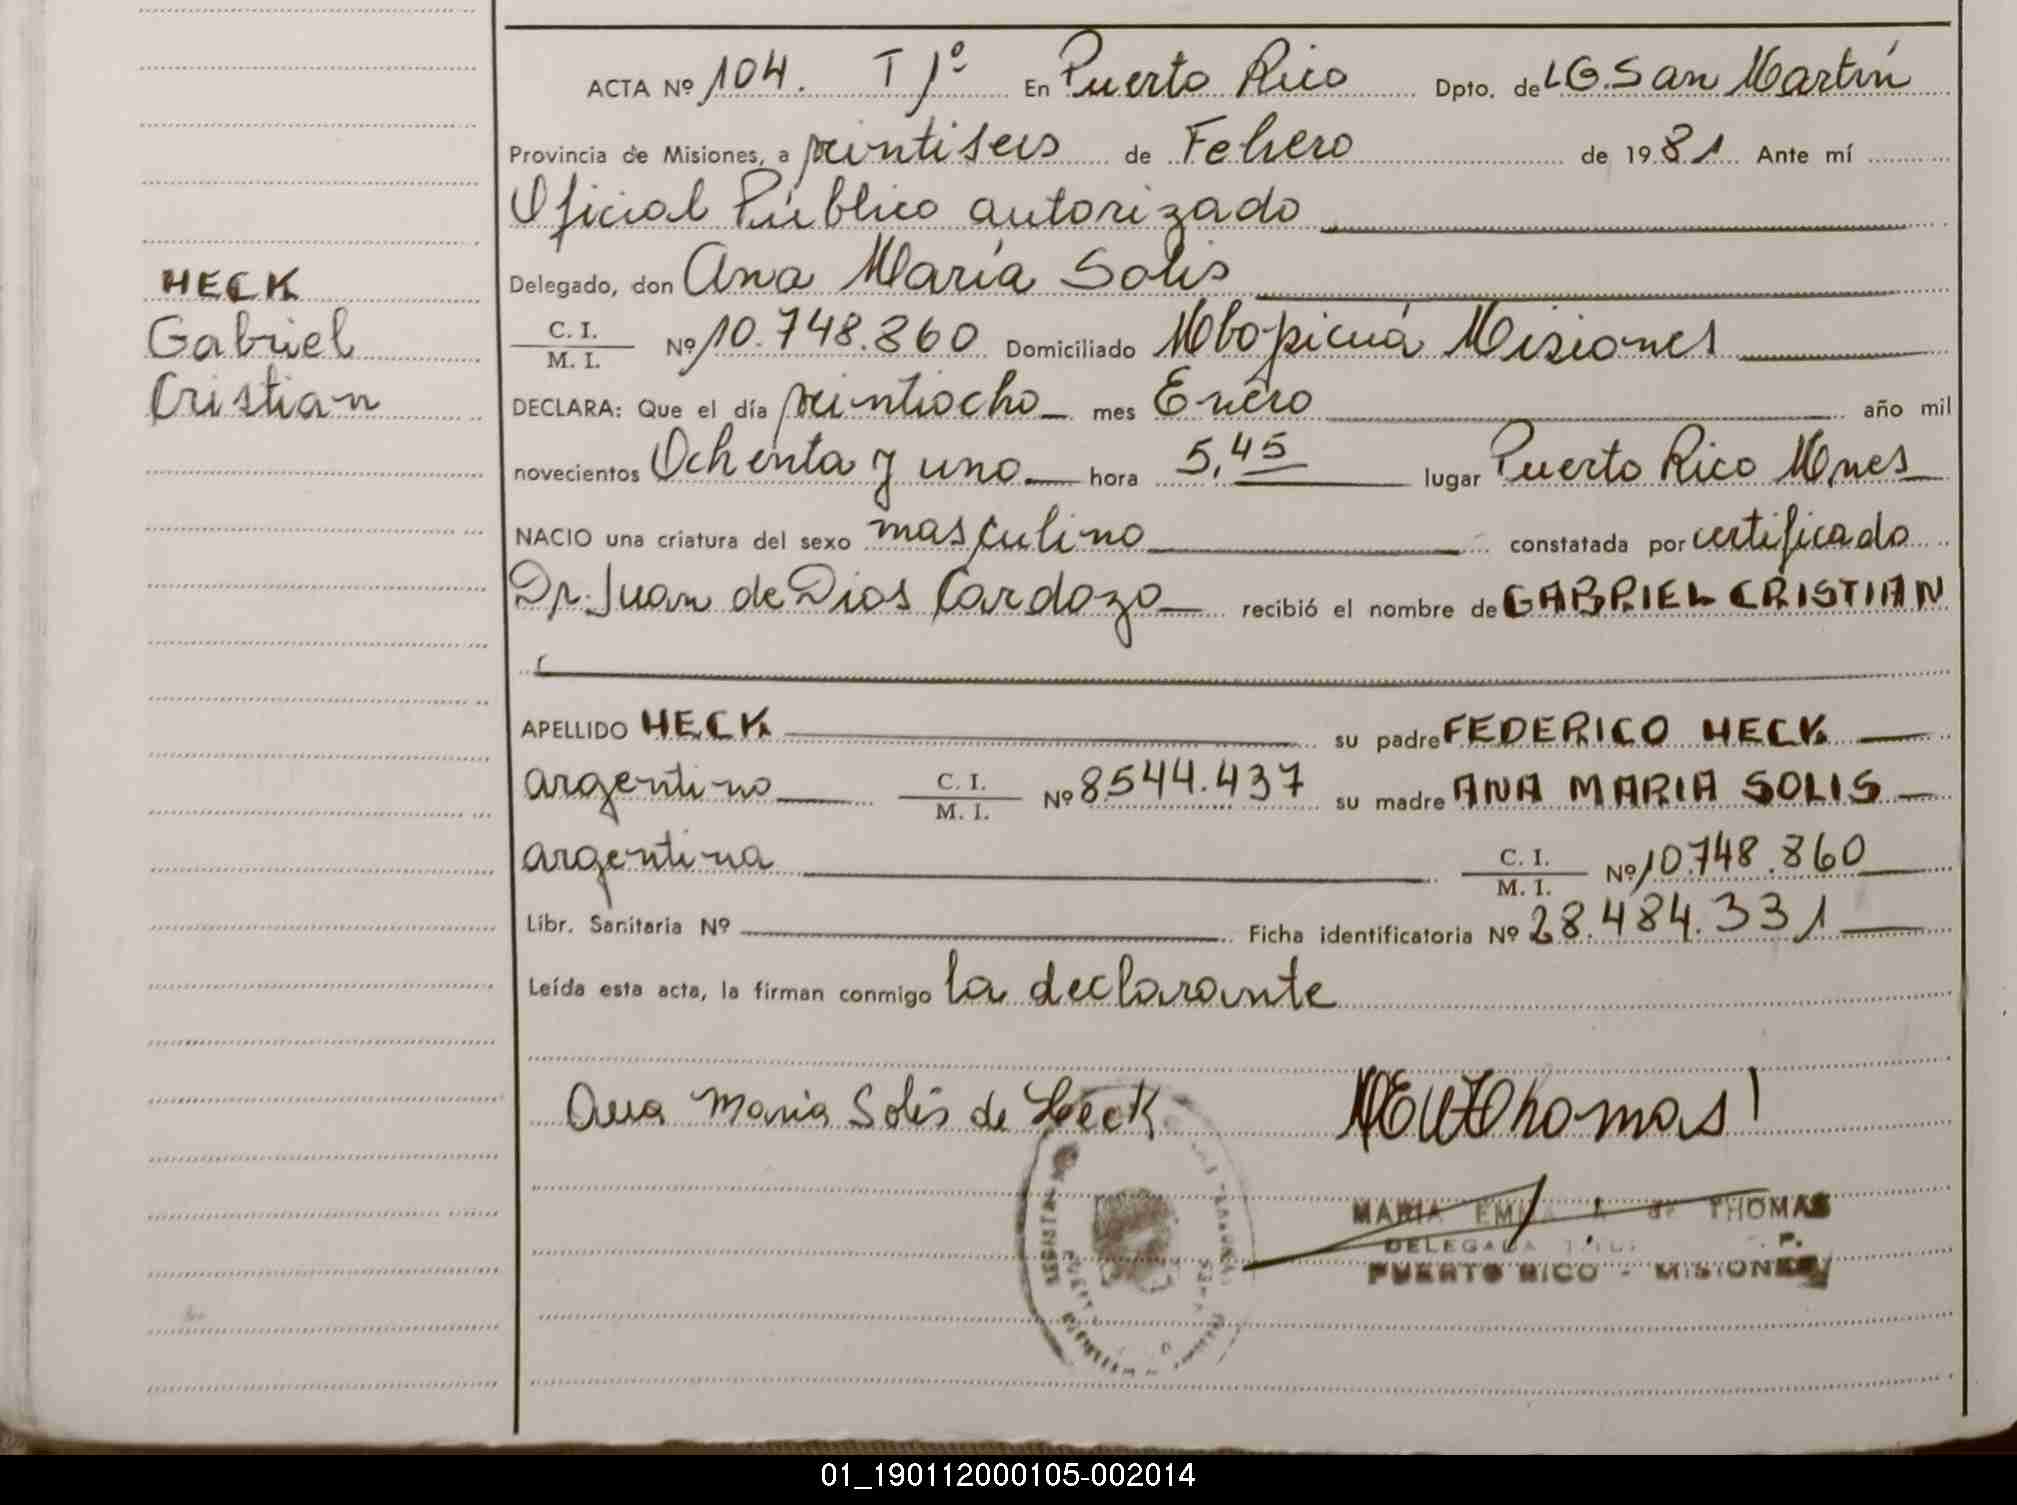 ACTA Nº 104. T 1º En Puerto Rico Dpto. de L G. San Martín
Provincia de Misiones, a veintiseis de Febrero de 1981 Ante mí
Oficial Público autorizado
HECK
Gabriel
Cristian
Delegado, don Ana María Solis
C. I.
M. I. Nº 10.748.860 Domiciliado Mbopicuá Misiones
DECLARA: Que el día veintiocho mes Enero año mil
novecientos Ochenta y uno hora 5,45 lugar Puerto Rico Mnes
NACIO una criatura del sexo masculino constatada por certificado
Dr. Juan de Dios Cardozo recibió el nombre de GABRIEL CRISTIAN
APELLIDO HECK su padre FEDERICO HECK
argentino C. I.
M. I. Nº 8544.437 su madre ANA MARIA SOLIS
argentina C. I.
M. I. Nº 10.748.860
Libr. Sanitaria Nº Ficha identificatoria Nº 28.484.331
Leída esta acta, la firman conmigo la declarante
Ana Maria Solis de Heck
MARIA de THOMAS
DELEGADA
PUERTO RICO - MISIONES
01_190112000105-002014